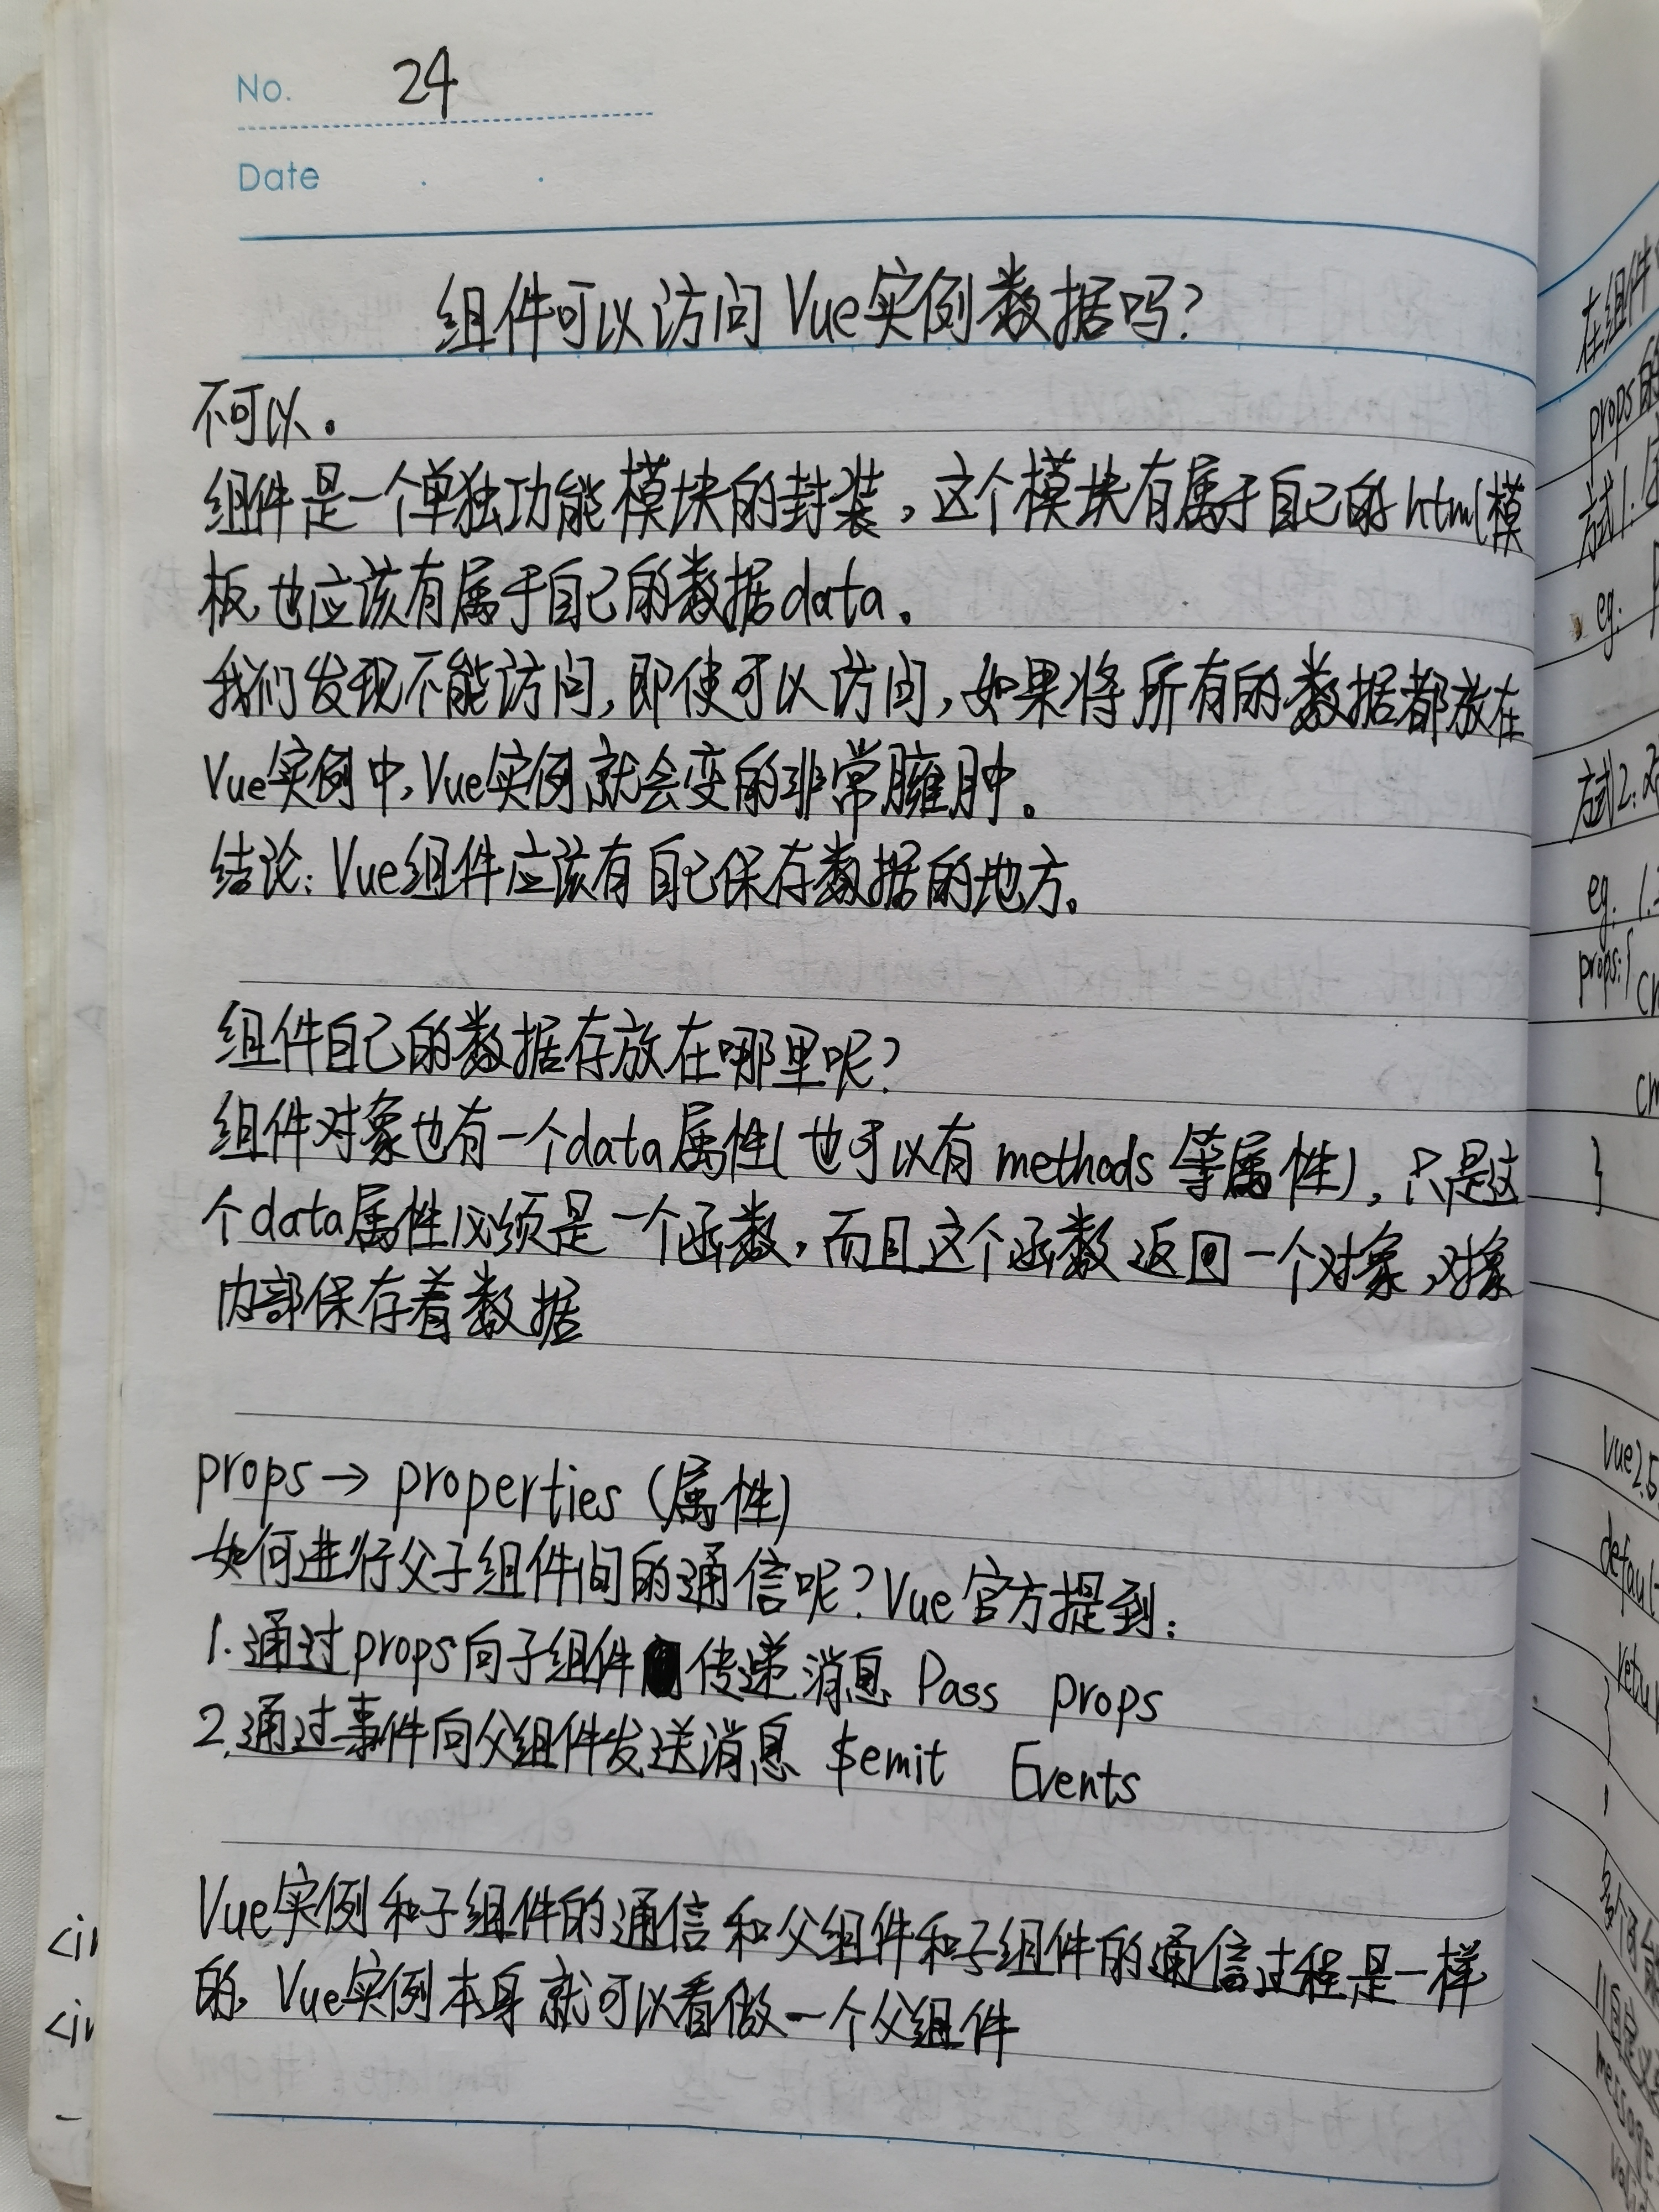 No. 24
Date
组件可以访问Vue实例数据吗?
不可以。
组件是一个单独功能模块的封装,这个模块有属于自己的html模
板,也应该有属于自己的数据data。
我们发现不能访问,即使可以访问,如果将所有的数据都放在
Vue实例中,Vue实例就会变的非常臃肿。
结论:Vue组件应该有自己保存数据的地方。
组件自己的数据存放在哪里呢?
组件对象也有一个data属性(也可以有methods等属性),只是这
个data属性必须是一个函数,而且这个函数返回一个对象,对象
内部保存着数据
props→properties(属性)
如何进行父子组件间的通信呢?Vue官方提到:
1.通过props向子组件传递消息 Pass props
2.通过事件向父组件发送消息 $emit Events
Vue实例和子组件的通信和父组件和子组件的通信过程是一样
的,Vue实例本身就可以看做一个父组件
在组件
props的
方式1:
eg:
方式2:
eg. 1.
props:{
}
Vue2.5
default
retu
}
,
多个
message: